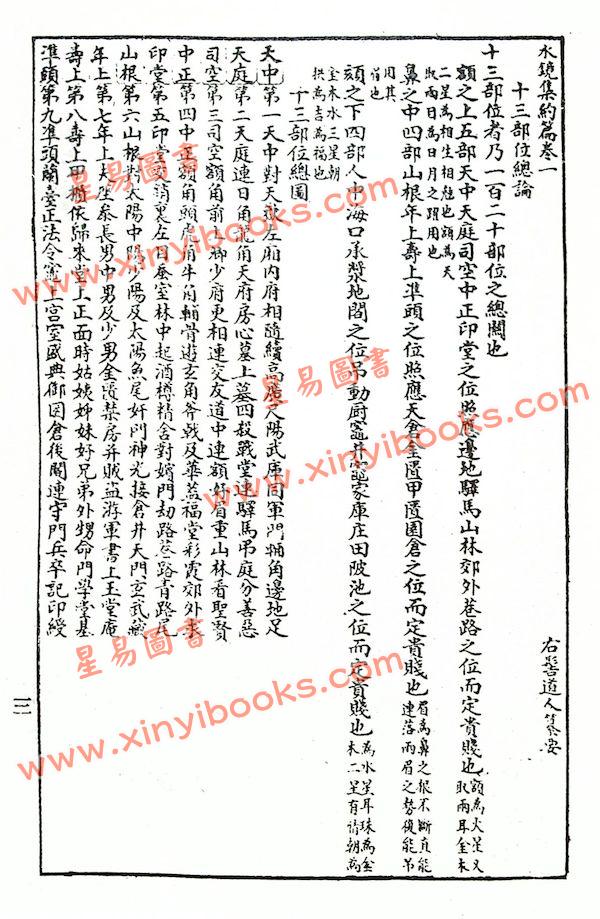 水鏡集約篇卷一
右髻道人纂要
十三部位總論
十三部位者乃一百二十部位之總關也
額之上五部天中天庭司空中正印堂之位照應邊地驛馬山林郊外巷路之位而定貴賤也額為火星又取兩耳金木
二星為相生相尅也額為天
取兩目為日月之照用也
鼻之中四部山根年上壽上準頭之位照應天倉金匱甲匱園倉之位而定貴賤也眉為鼻之根不斷直能
連落兩眉之勢後能吊
用其
眉也
頦之下四部人中海口承漿地閣之位吊動厨竈井部家庫庄田陂池之位而定貴賤也為水星耳珠為金
木二星有情朝為
金木水三星朝
拱為吉為福也
十三部位總圖
天中第一天中對天嶽左廂內府相隨續高廣尺陽武庫同軍門輔角邊地足
天庭第二天庭連日角龍角天府房心墓上墓四殺戰堂連驛馬吊庭分善惡
司空第三司空額角前上卿少府更相連交友道中連額好眉重山林看聖賢
中正第四中正額角頭虎角牛角輔骨遊玄角斧戟及華蓋福堂彩霞郊外求
印堂第五印堂交鎖裏左目蚕室林中起酒樽精舍對嬪門劫路巷路青路尾
山根第六山根對太陽中陽少陽及太陽魚尾奸門神光接倉井天門玄武藏
年上第七年上夫座參長男中男及少男金匱禁房并賊盜游軍書上玉堂庵
壽上第八壽上甲櫃依歸來堂上正面時姑姨姊妹好兄弟外甥命門學堂基
準頭第九準頭蘭臺正法令竈上宮室盛典御園倉後閣連守門兵卒記印綬
三
星易圖書
www.xinyibooks.com
星易圖書
www.xinyibooks.com
星易圖書
www.xinyibooks.com